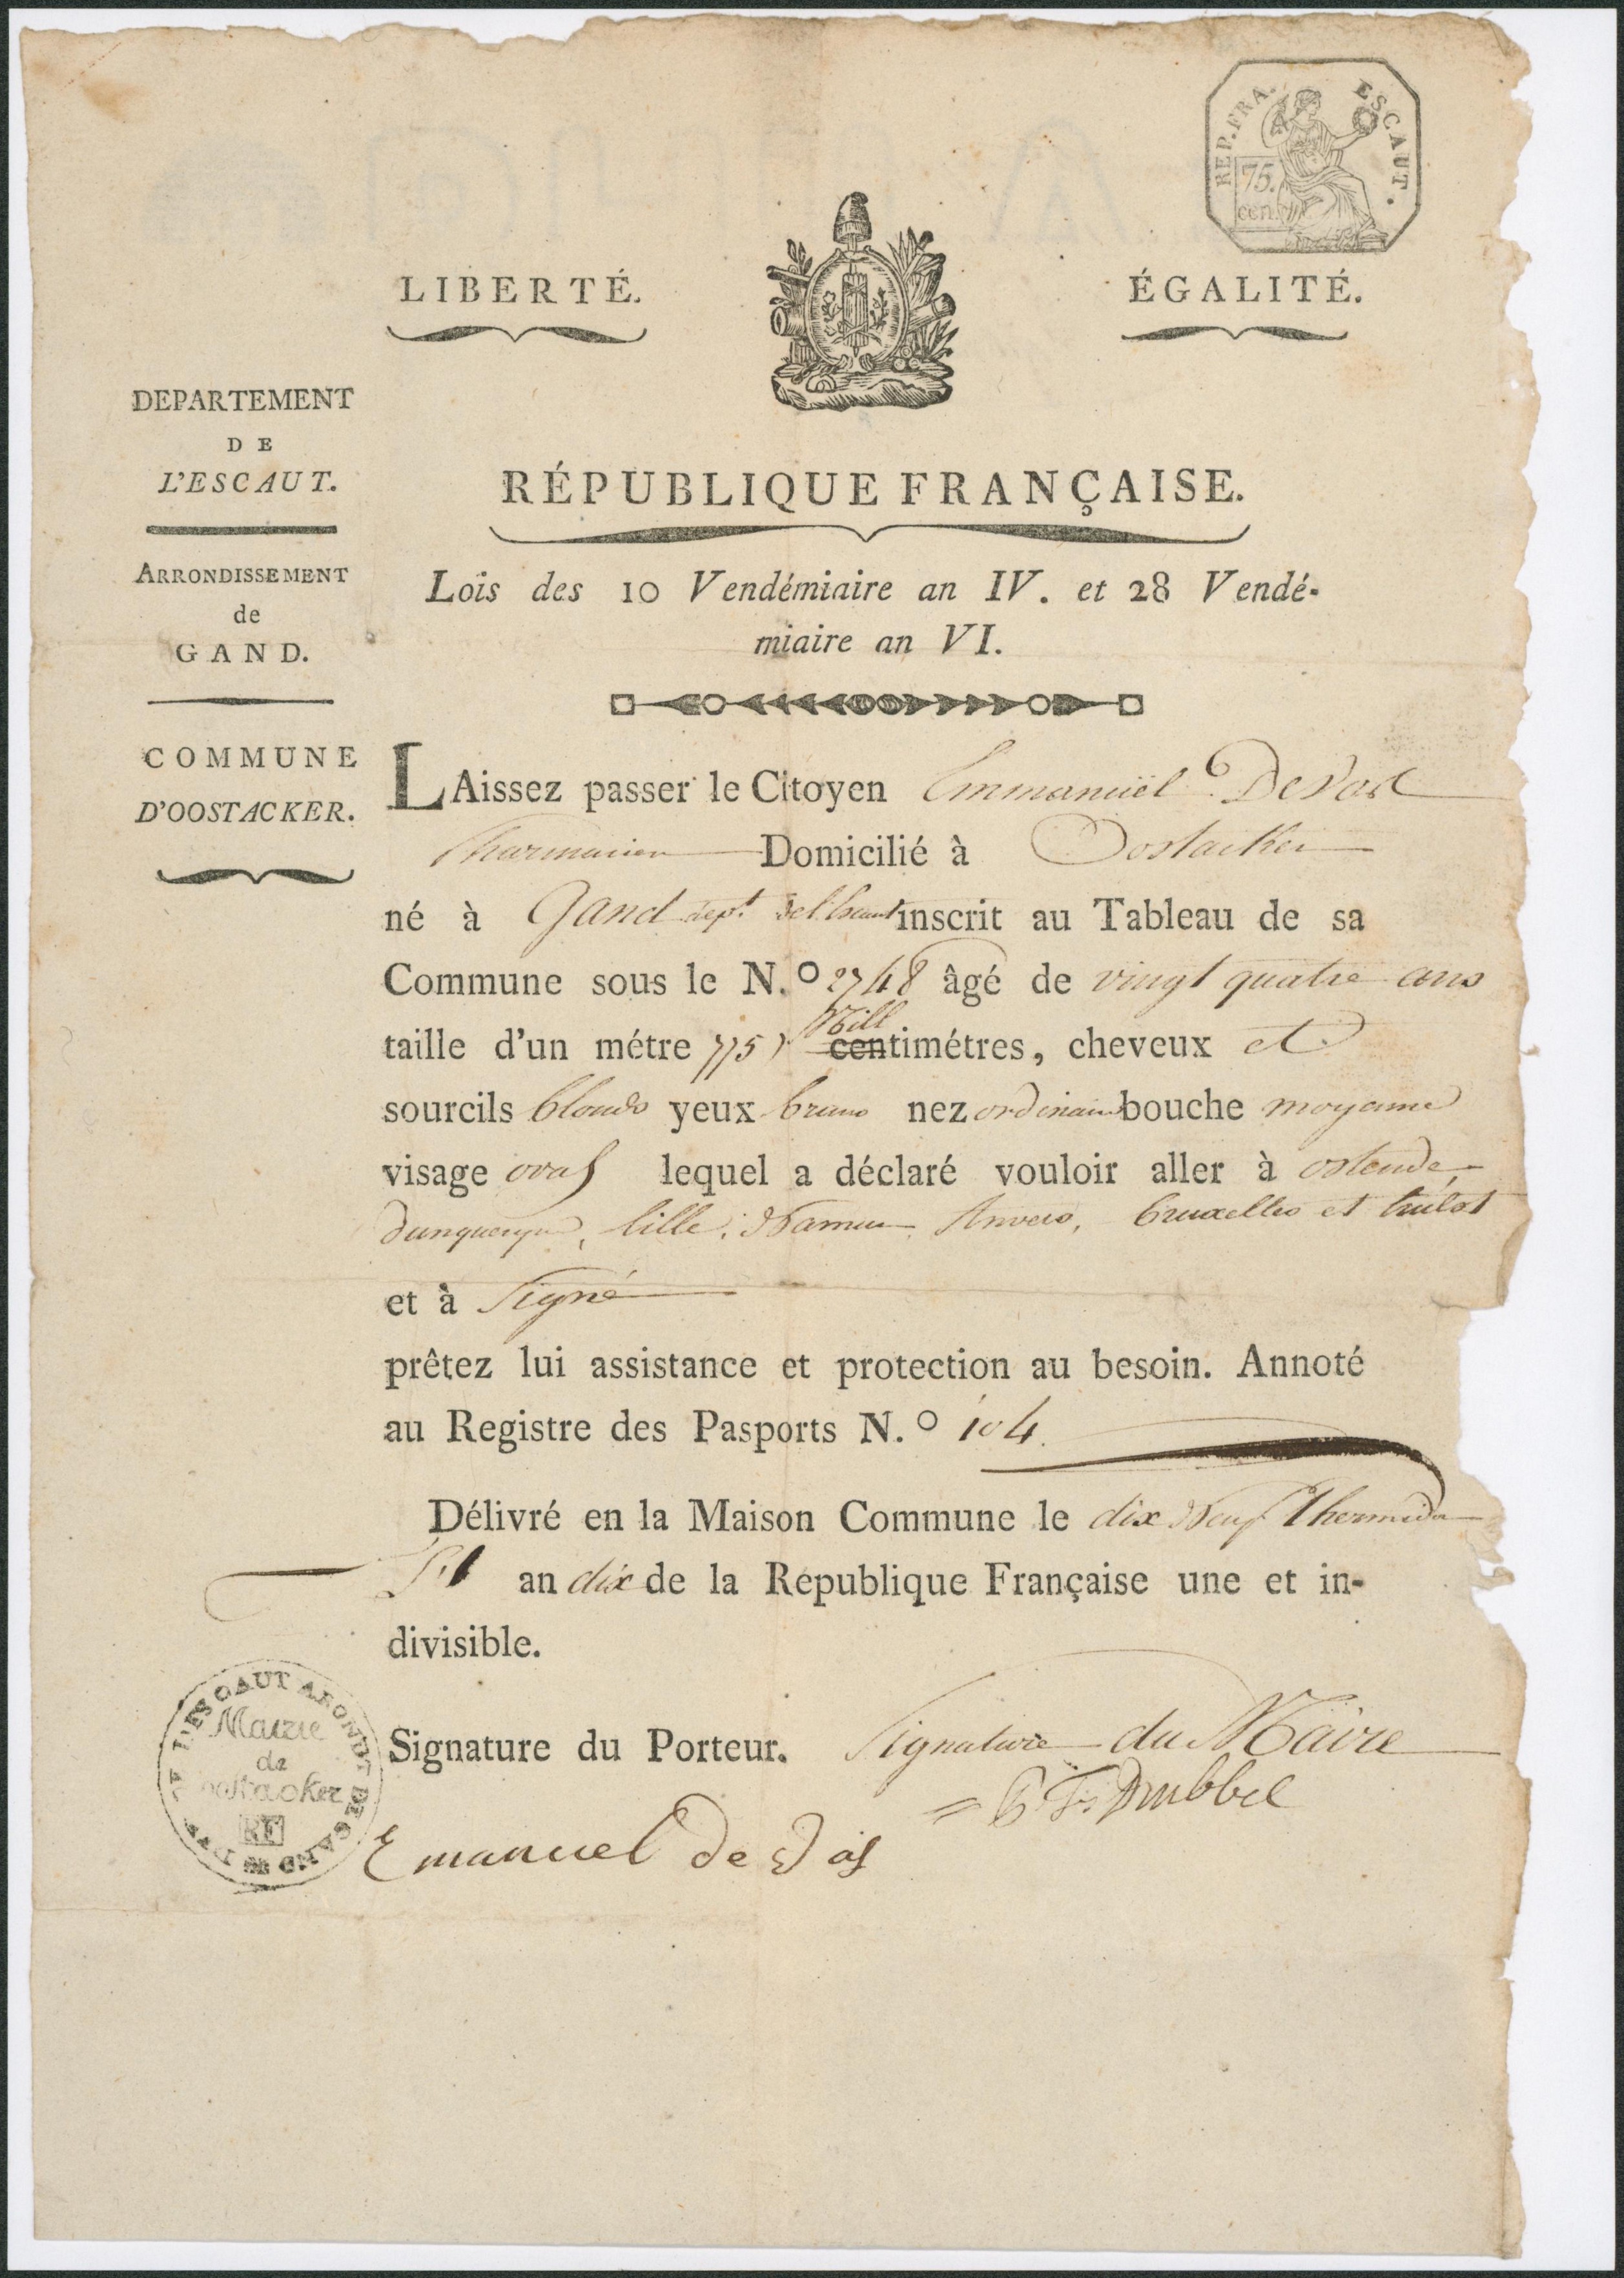 REP. FRA. ESCAUT.
75.
cen.
LIBERTÉ.
ÉGALITÉ.
DEPARTEMENT
DE
L'ESCAUT.
ARRONDISSEMENT
de
GAND.
COMMUNE
D'OOSTACKER.
RÉPUBLIQUE FRANÇAISE.
Lois des 10 Vendémiaire an IV. et 28 Vendé-
miaire an VI.
LAissez passer le Citoyen Emmanuël
Pharmacien Domicilié à Oostacker
né à Gand dept. inscrit au Tableau de sa
Commune sous le N.o 2748 âgé de vingt quatre ans
taille d'un métre 775 Mill centimétres, cheveux et
sourcils blonds yeux bruns nez ordinaire bouche moyenne
visage oval lequel a déclaré vouloir aller à ostende,
dunquerque, lille, Namur, Anvers, bruxelles et
et à Signé
prêtez lui assistance et protection au besoin. Annoté
au Registre des Pasports N.o 104.
Délivré en la Maison Commune le dix Neuf Thermidor
an dix de la Republique Française une et in-
divisible.
Signature du Porteur. Signature du Maire
Emanuel de
DEPT. DE L'ESCAUT ARONDT DE GAND
Mairie
de
oostacker
RF